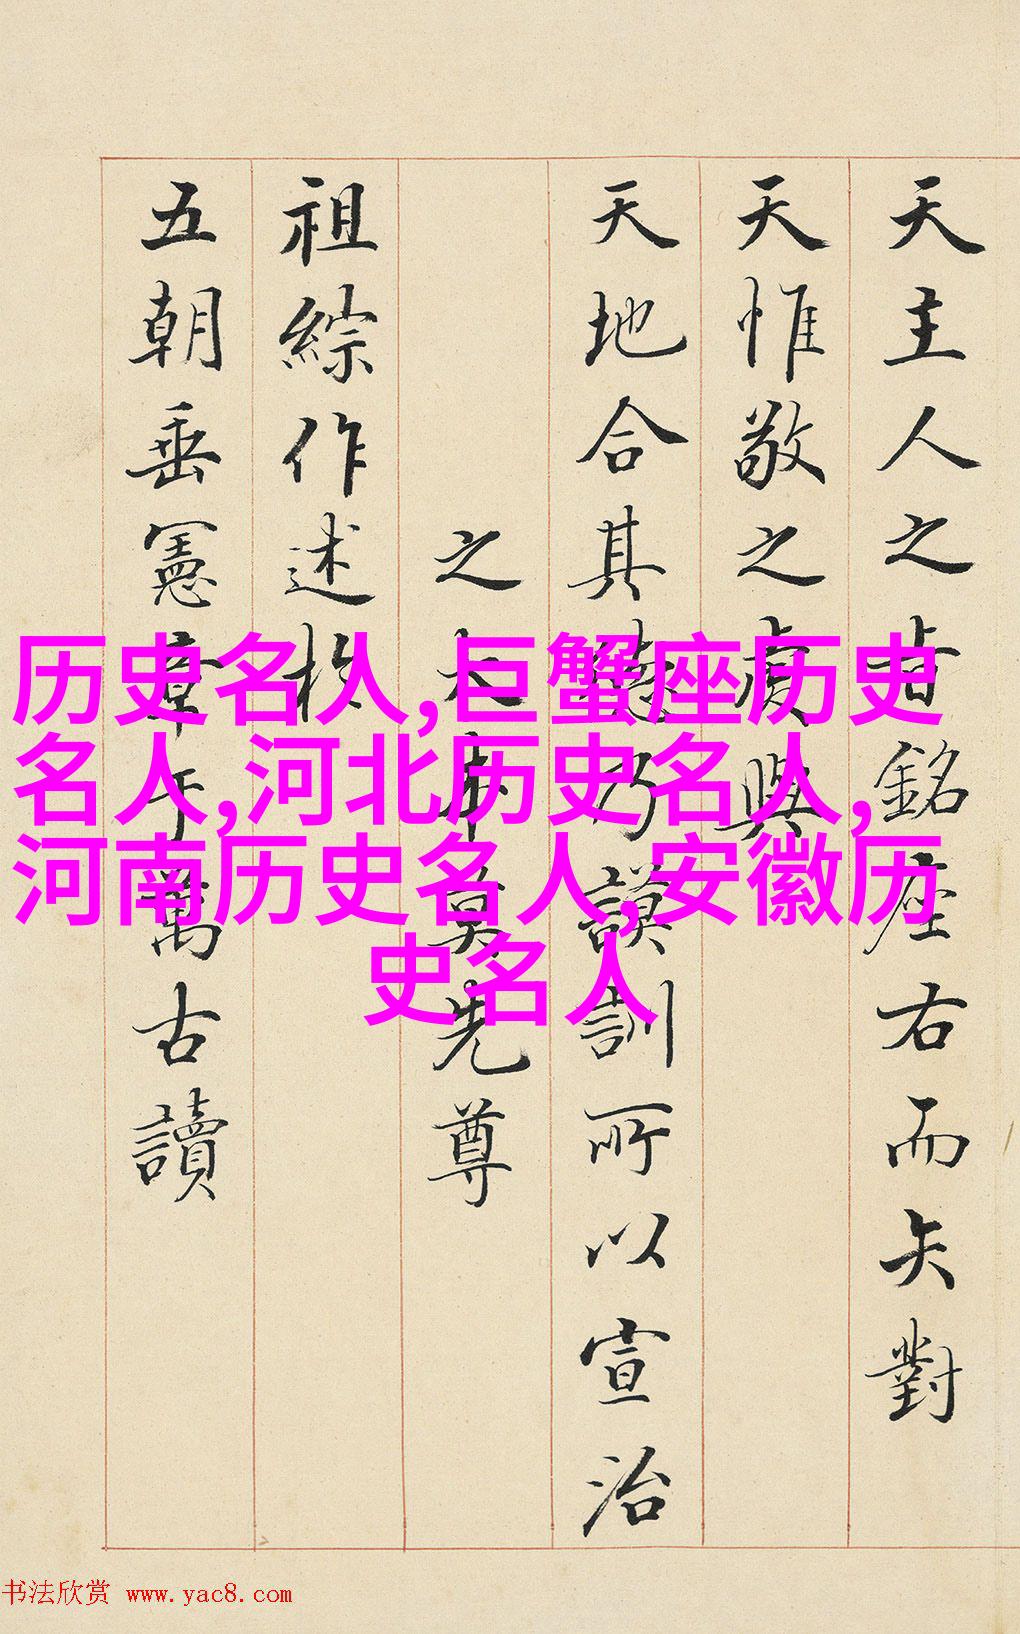 天主人之旨銘座右而矢對
天惟敬之虔與
天地合其德乃謨訓所以宣治
之大本莫先尊
祖綜作述於
五朝垂憲章于萬古讀
历史名人,巨蟹座历史
名人,河北历史名人,
河南历史名人,安徽历
史名人
书法欣赏 www.yac8.com